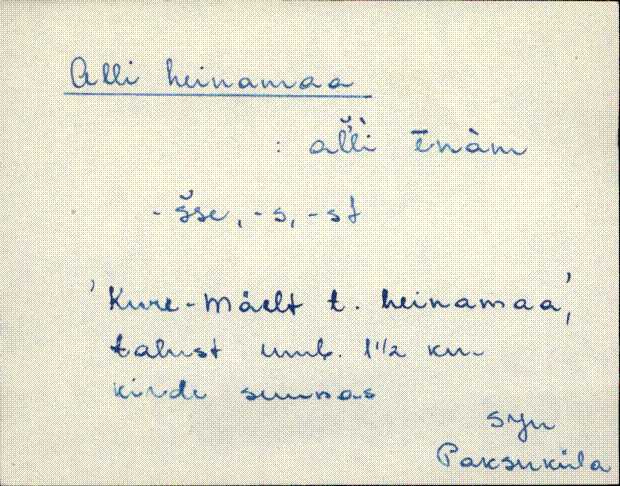 Alli heinamaa
: al̆l̀i ēnàm
- s̆se, -s, -st
'Kure-Mäelt t. heinamaa',
talust umb. 1 1/2 km.
kirde suunas
syn
Paksuküla